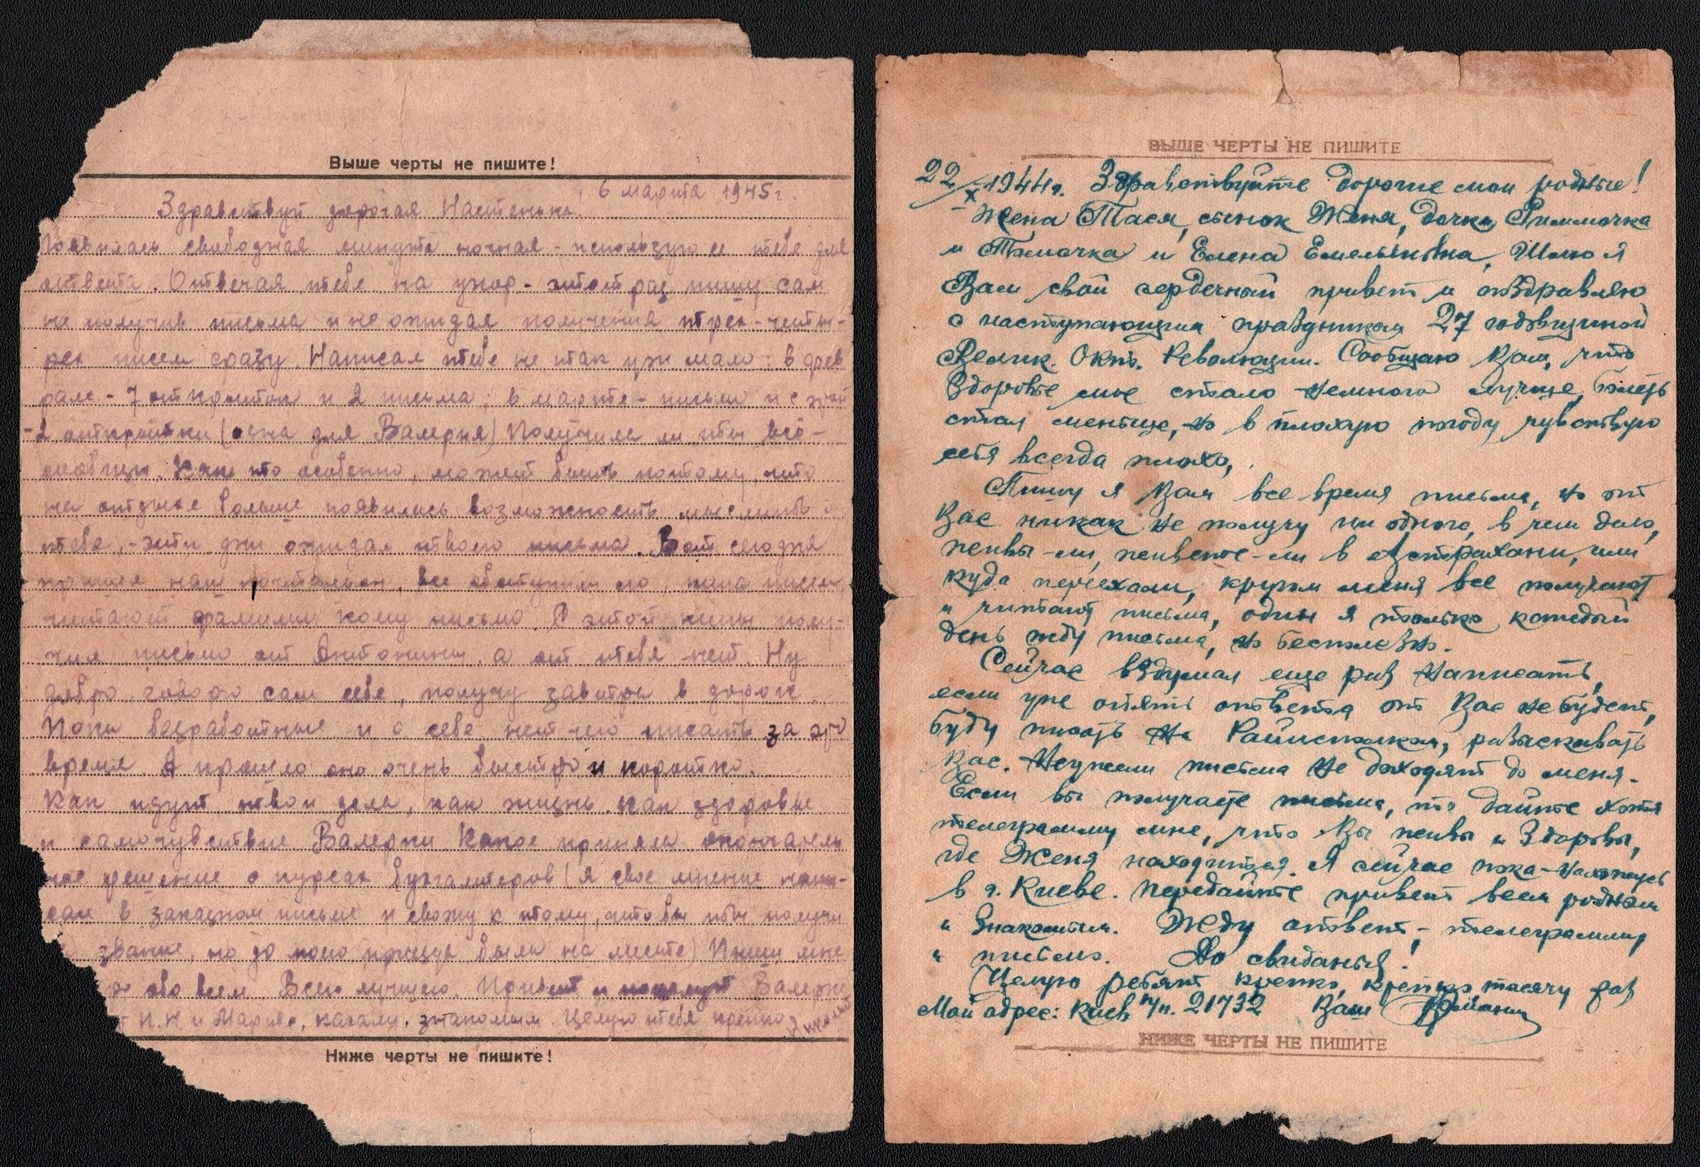 Выше черты не пишите!
6 марта 1945 г.
Здравствуй дорогая Настенька.
Появилась свободная минута ночная - использую ее тебе для
ответа. Отвечая тебе на укор - этот раз пишу сам
не получив письма и не ожидая получения трех-четы-
рех писем сразу. Написал тебе не так уж мало: в фев
рале - 7 открыток и 2 письма; в марте - письмо и с этой
- 2 открытки (одна для Валерия) Получила ли ты все -
сообщи. Как то особенно, может быть потому, что
на отдыхе больше появилась возможность мыслить о
тебе, - эти дни ожидал твоего письма. Вот сегодня
пришел наш почтальон, все обступили его, пачка писем
читают фамилии кому письмо. В этой кипе полу-
чил письмо от Антонины, а от тебя нет. Ну
добро, говорю сам себе, получу завтра в дороге.
Пока безработные и о себе нечего писать за это
время. А прошло оно очень быстро и коротко.
Как идут твои дела, как жизнь. Как здоровье
и самочувствие Валерки. Какое приняла окончатель
ное решение о курсах бухгалтеров (Я свое мнение напи-
сал в заказном письме и свожу к тому, чтобы ты получи
звание, но до поры была на месте) Пиши мне
обо всем. Всего лучшего. Привет и поцелуй Валерке
Н.Н и Марии, качалу, знакомым Целую тебя крепко Николай
Ниже черты не пишите!
ВЫШЕ ЧЕРТЫ НЕ ПИШИТЕ
22/X-1944 г. Здравствуйте дорогие мои родные!
Жена Тася, сынок Женя, дочка Риммочка
и Томочка и Елена Емельяновна, Шлю я
Вам свой сердечный привет и поздравляю
с наступающим праздником 27 годовщиной
Велик. Окт. Революции. Сообщаю Вам, что
здоровье мое стало немного лучше, болеть
стал меньше, но в плохую погоду чувствую
себя всегда плохо,
Пишу я Вам все время письма, но от
Вас никак не получу ни одного, в чем дело,
живы-ли, живете-ли в Астрахани, или
куда переехали, кругом меня все получают
и читают письма, один я только каждый
день жду письма, но бесполезно.
Сейчас вздумал еще раз написать,
если уже опять ответа от Вас не будет,
буду писать на Райисполком, разыскивать
Вас. Неужели письма не доходят до меня.
Если вы получаете письма, то дайте хотя
телеграмму мне, что Вы живы и здоровы,
где Женя находится. Я сейчас пока-нахожусь
в г. Киеве. Передайте привет всем родным
и знакомым. Жду ответ, - телеграмму
и письмо. До свиданья.
Целую ребят крепко, крепко тысячу раз
Мой адрес: Киев п/п. 21732 Ваш
НИЖЕ ЧЕРТЫ НЕ ПИШИТЕ